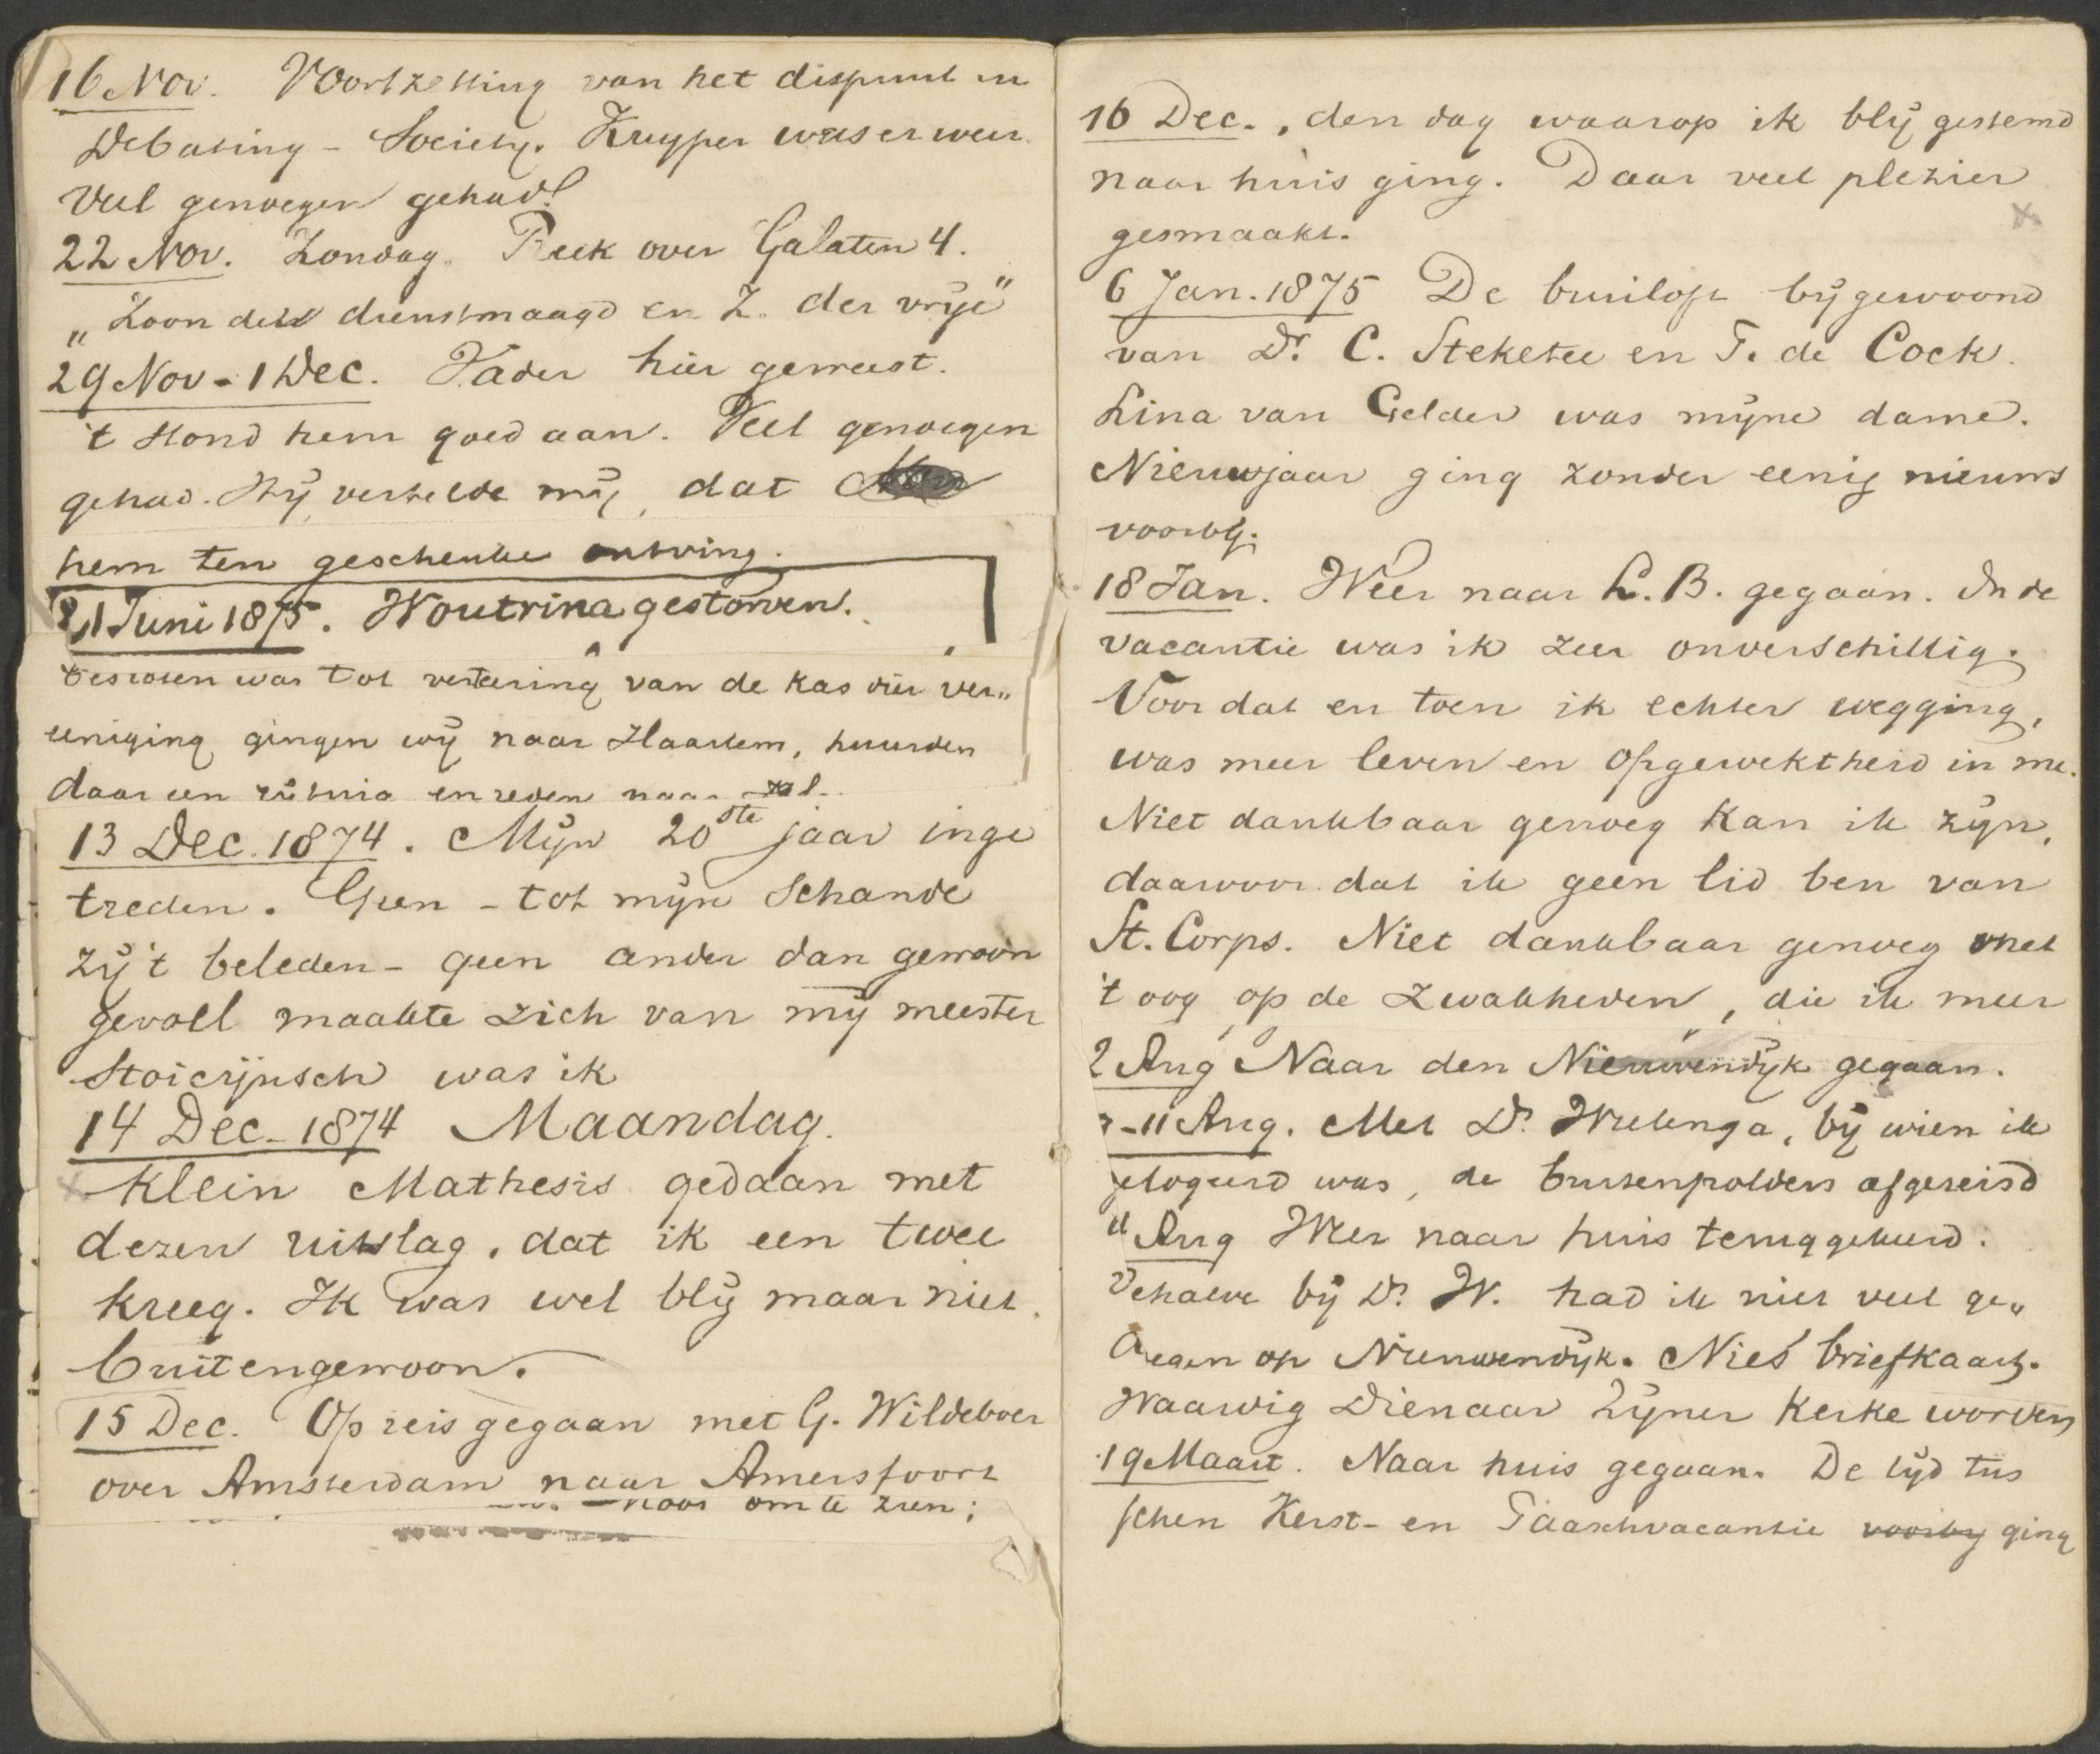 16 Nov. Voortzetting van het dispuut in
Debating - Society. Kuyper was er weer.
Veel genoegen gehad!
22 Nov. Zondag. Preek over Galaten 4.
„Zoon der dienstmaagd en Z. der vrije”
29 Nov - 1 Dec. Vader hier geweest.
't stond hem goed aan. Veel genoegen
gehad. Hij vertelde mij, dat
hem ten geschenke ontving.
21 Juni 1875. Woutrina gestorven.
besloten was tot vertering van de kas dier ver„
eeniging gingen wij naar Haarlem, huurden
daar een en reden naar
13 Dec. 1874. Mijn 20ste jaar inge
treden. Geen - tot mijn schande
zij 't beleden - geen ander dan gewoon
gevoel maakte zich van mij meester
Stoicijnsch was ik
14 Dec. 1874 Maandag.
Klein Mathesis gedaan met
dezen uitslag, dat ik een twee
kreeg. Ik was wel blij maar niet
buitengewoon.
15 Dec. Op reis gegaan met G. Wildeboer
over Amsterdam naar Amersfoort
om te zien;
16 Dec., den dag waarop ik blij gestemd
naar huis ging. Daar veel plezier
gesmaakt.
6 Jan. 1875 De bruiloft bijgewoond
van Dr. C. Steketee en T. de Cock.
Lina van Gelder was mijne dame.
Nieuwjaar ging zonder eenig nieuws
voorbij.
18 Jan. Weer naar L. B. gegaan. In de
vacantie was ik zeer onverschillig.
Voor dat en toen ik echter wegging,
was meer leven en opgewektheid in me.
Niet dankbaar genoeg kan ik zijn,
daarvoor dat ik geen lid ben van
St. Corps. Niet dankbaar genoeg met
't oog op de zwakheden, die ik meer
2 Aug Naar den Nieuwendijk gegaan.
-11 Aug. Met Dr. Wielenga, bij wien ik
gelogeerd was, de buitenpolders afgereisd
11 Aug Weer naar huis teruggekeerd.
Behalve bij Dr. W. had ik niet veel ge„
noegen op Nieuwendijk. Nies' briefkaart.
Waardig Dienaar Zijner Kerke worden
19 Maart. Naar huis gegaan. De tijd tus
schen Kerst- en Paaschvacantie voorbij ging